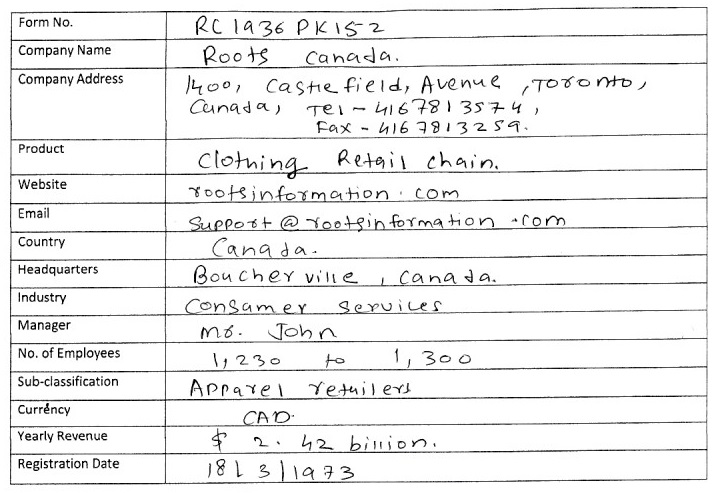 Form No. RC1936PK15-2
Company Name Roots Canada.
Company Address 1400, Castle field, Avenue, Toronto,
Canada, Tel - 4167813574,
Fax - 4167813259.
Product Clothing Retail chain.
Website rootsinformation.com
Email Support@rootsinformation.com
Country Canada.
Headquarters Boucherville, Canada.
Industry Consamer services
Manager mr. John
No. of Employees 1,230 to 1,300
Sub-classification Apparel retailers
Currency CAD.
Yearly Revenue $ 2.42 billion.
Registration Date 18/3/1973